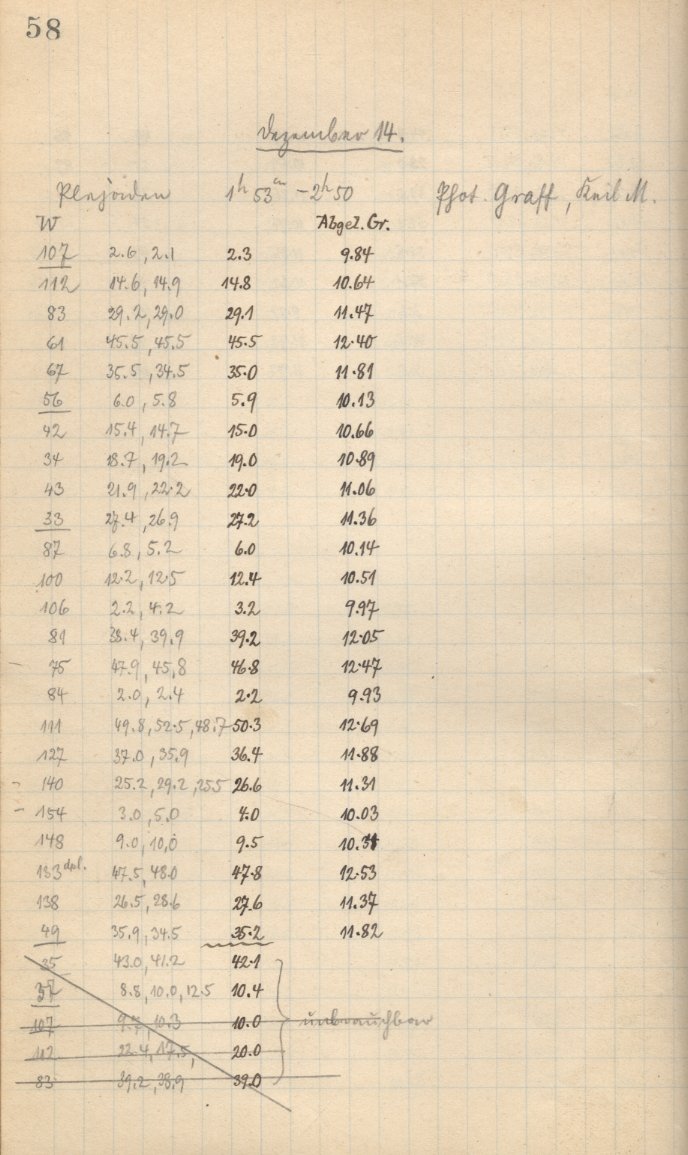 58
Dezember 14.
Plejaden 1h 53m – 2h 50 Phot. Graff, Keil M.
W Abgel. Gr.
107 2.6, 2.1 2.3 9.84
112 14.6, 14.9 14.8 10.64
83 29.2, 29.0 29.1 11.47
61 45.5, 45.5 45.5 12.40
67 35.5, 34.5 35.0 11.81
56 6.0, 5.8 5.9 10.13
42 15.4, 14.7 15.0 10.66
34 18.7, 19.2 19.0 10.89
43 21.9, 22.2 22.0 11.06
33 27.4, 26.9 27.2 11.36
87 6.8, 5.2 6.0 10.14
100 12.2, 12.5 12.4 10.51
106 2.2, 4.2 3.2 9.97
81 38.4, 39.9 39.2 12.05
– 75 47.9, 45,8 46.8 12.47
84 2.0, 2.4 2.2 9.93
111 49.8, 52.5, 48.7 50.3 12.69
127 37.0, 35.9 36.4 11.88
– 140 25.2, 29.2, 25.5 26.6 11.31
– 154 3.0, 5.0 4.0 10.03
148 9.0, 10,0 9.5 10.34
133 dpl. 47.5, 48.0 47.8 12.53
138 26.5, 28.6 27.6 11.37
49 35.9, 34.5 35.2 11.82
35 43.0, 41.2 42.1
37 8.8, 10.0, 12.5 10.4
107 9.7, 10.3 10.0 unbrauchbar
112 22.4, 17.5, 20.0
83 39.2, 38.9 39.0